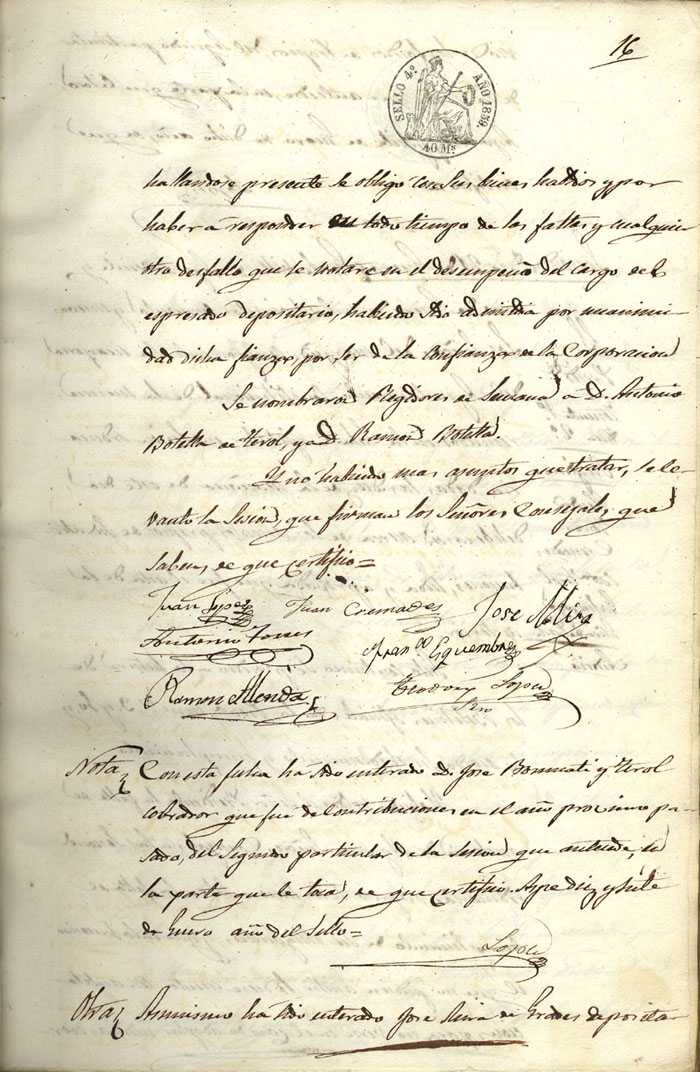 16
SELLO 4º AÑO 1839.
40 Ms
hallandose presente se obligó con sus bienes habidos y por
haber a responder en todo tiempo de las faltas y cualquier
otro desfallo que se notare en el desempeño del cargo de
espresado depositario, habiendo sido admitida por unanimi-
dad dicha fianza, por ser de la confianza de la Corporacion
Se nombraron Regidores de Semana a D. Antonio
Botella de Terol, y a D. Ramon Botella.
Y no habiendo mas asuntos que tratar, se le-
vanto la Sesion, que firman los Señores Consejales que
saben, de que certifico=
Juan Lopez Juan Cremades Jose Mira
Antonio Torres Franco Esquembre
Ramon Allenda Teodoro Lopez
Srio
Nota Con esta fecha ha sido enterado D. Jose Bonmati y Terol
cobrador que fue de contribuciones en el año proximo pa-
sado, del segundo particular de la sesion que antecede, en
la parte que le toca, de que certifico. Aspe diez y siete
de Enero año del Sello=
Lopez
Otra Asimismo ha sido enterado Jose Mira de Graves deposita-